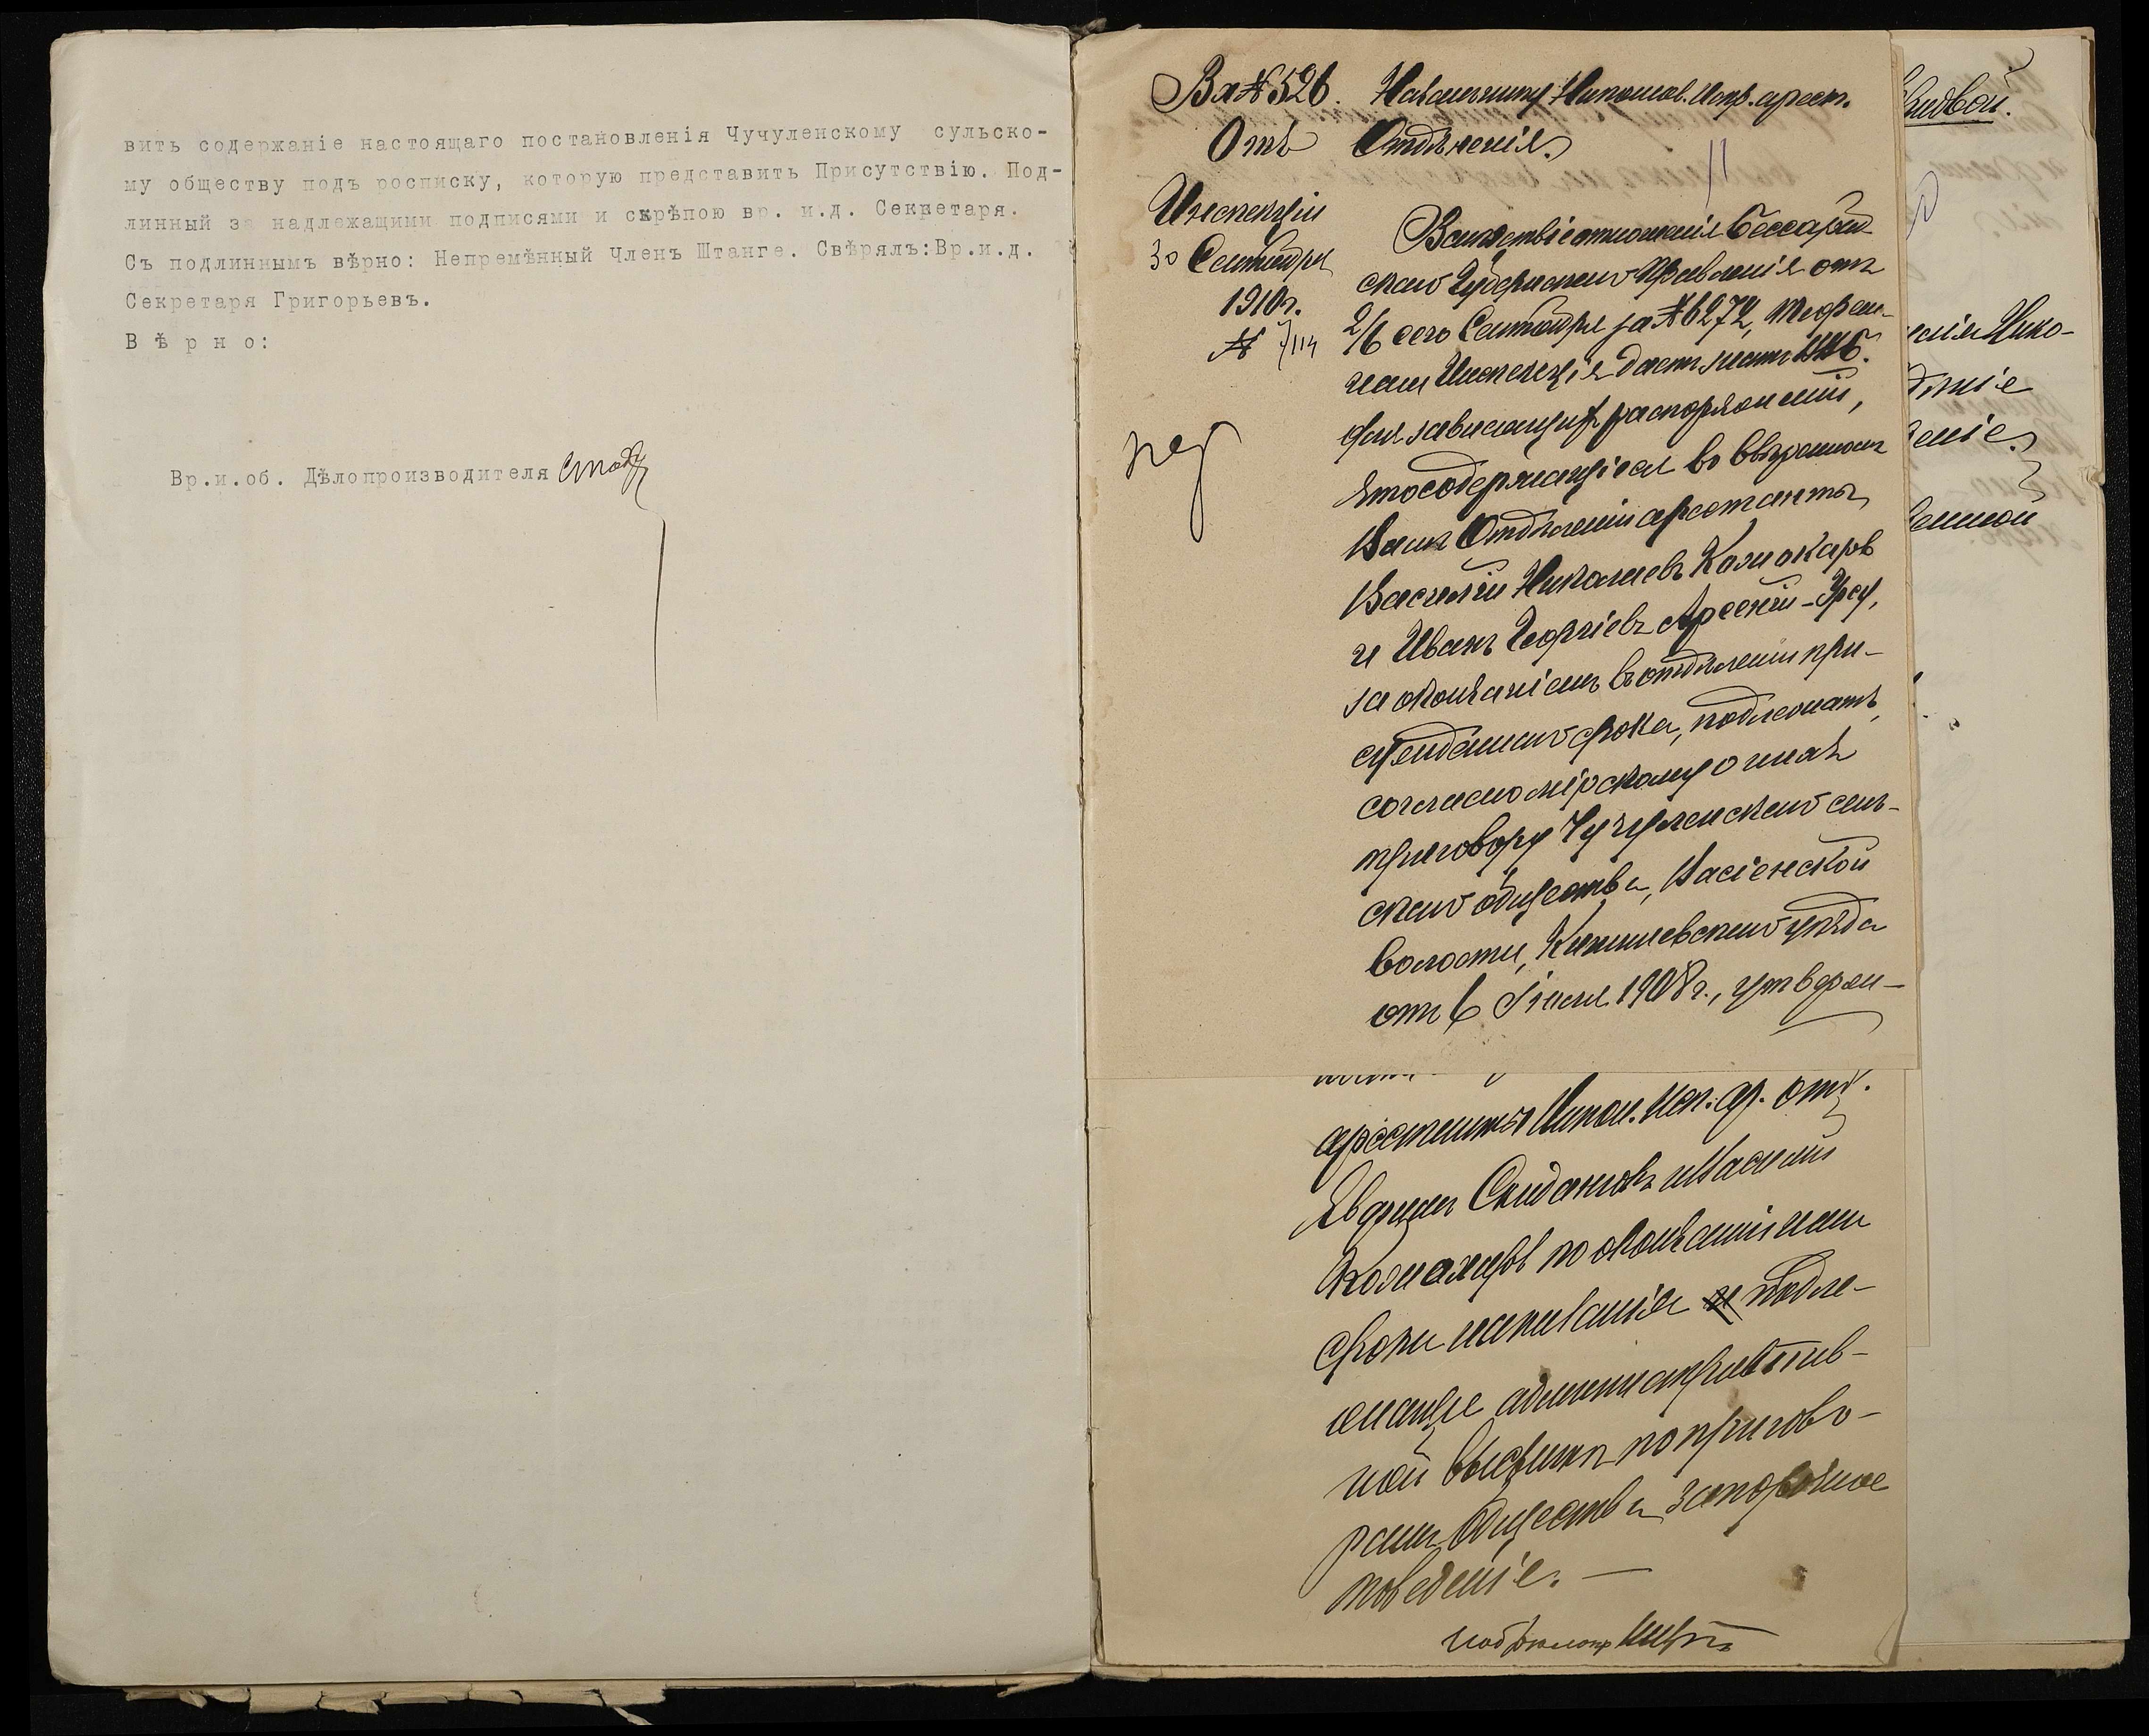 вить содержаніе настоящаго постановленія Чучуленскому сульско-
му обществу подъ росписку, которую представить Присутствію. Под-
линный за надлежащими подписями и скрѣпою вр. и.д. Секретаря.
Съ подлиннымъ вѣрно: Непремѣнный Членъ Штанге. Свѣрялъ:Вр.и.д.
Секретаря Григорьевъ.
Вѣрно:
Вр.и.об. Дѣлопроизводителя
Вх №526.
Отъ
Инспекціи
30 Сентября
1910г.
№ 7114
Начальнику Никола. Испр. арест.
Отдѣленія.
11
Вслѣдствіе отношенія Бессараб-
скаго Губернскаго Правленія отъ
2/6 сего Сентября за №6272, Тюрем-
ная Инспекція даетъ знать В.В.Б.
для зависящихъ распоряженій,
что содержащіеся во ввѣренномъ
Вамъ Отдѣленіи арестанты
Василій Николаевъ Кожокарь
и Иванъ Георгіевъ Арсеній-Урсу,
за окончаніемъ въ отдѣленіи при-
сужденнаго срока, подлежатъ,
согласно мірскому о нихъ
приговору Чучуленскаго сель-
скаго общества, Васіенской
волости, Кишиневскаго уѣзда
отъ 6 Іюня 1908г., утвержи-
арестанты Никол. исп. ар. отд.
Скидановъ и Василій
Кожокарь по окончаніи ими
срока наказанія подле-
жащіе административ-
ной высылкѣ по пригово-
рамъ Общества за порочное
поведеніе. —
видовой.
нія Нико-
дѣніе
деніе
венной